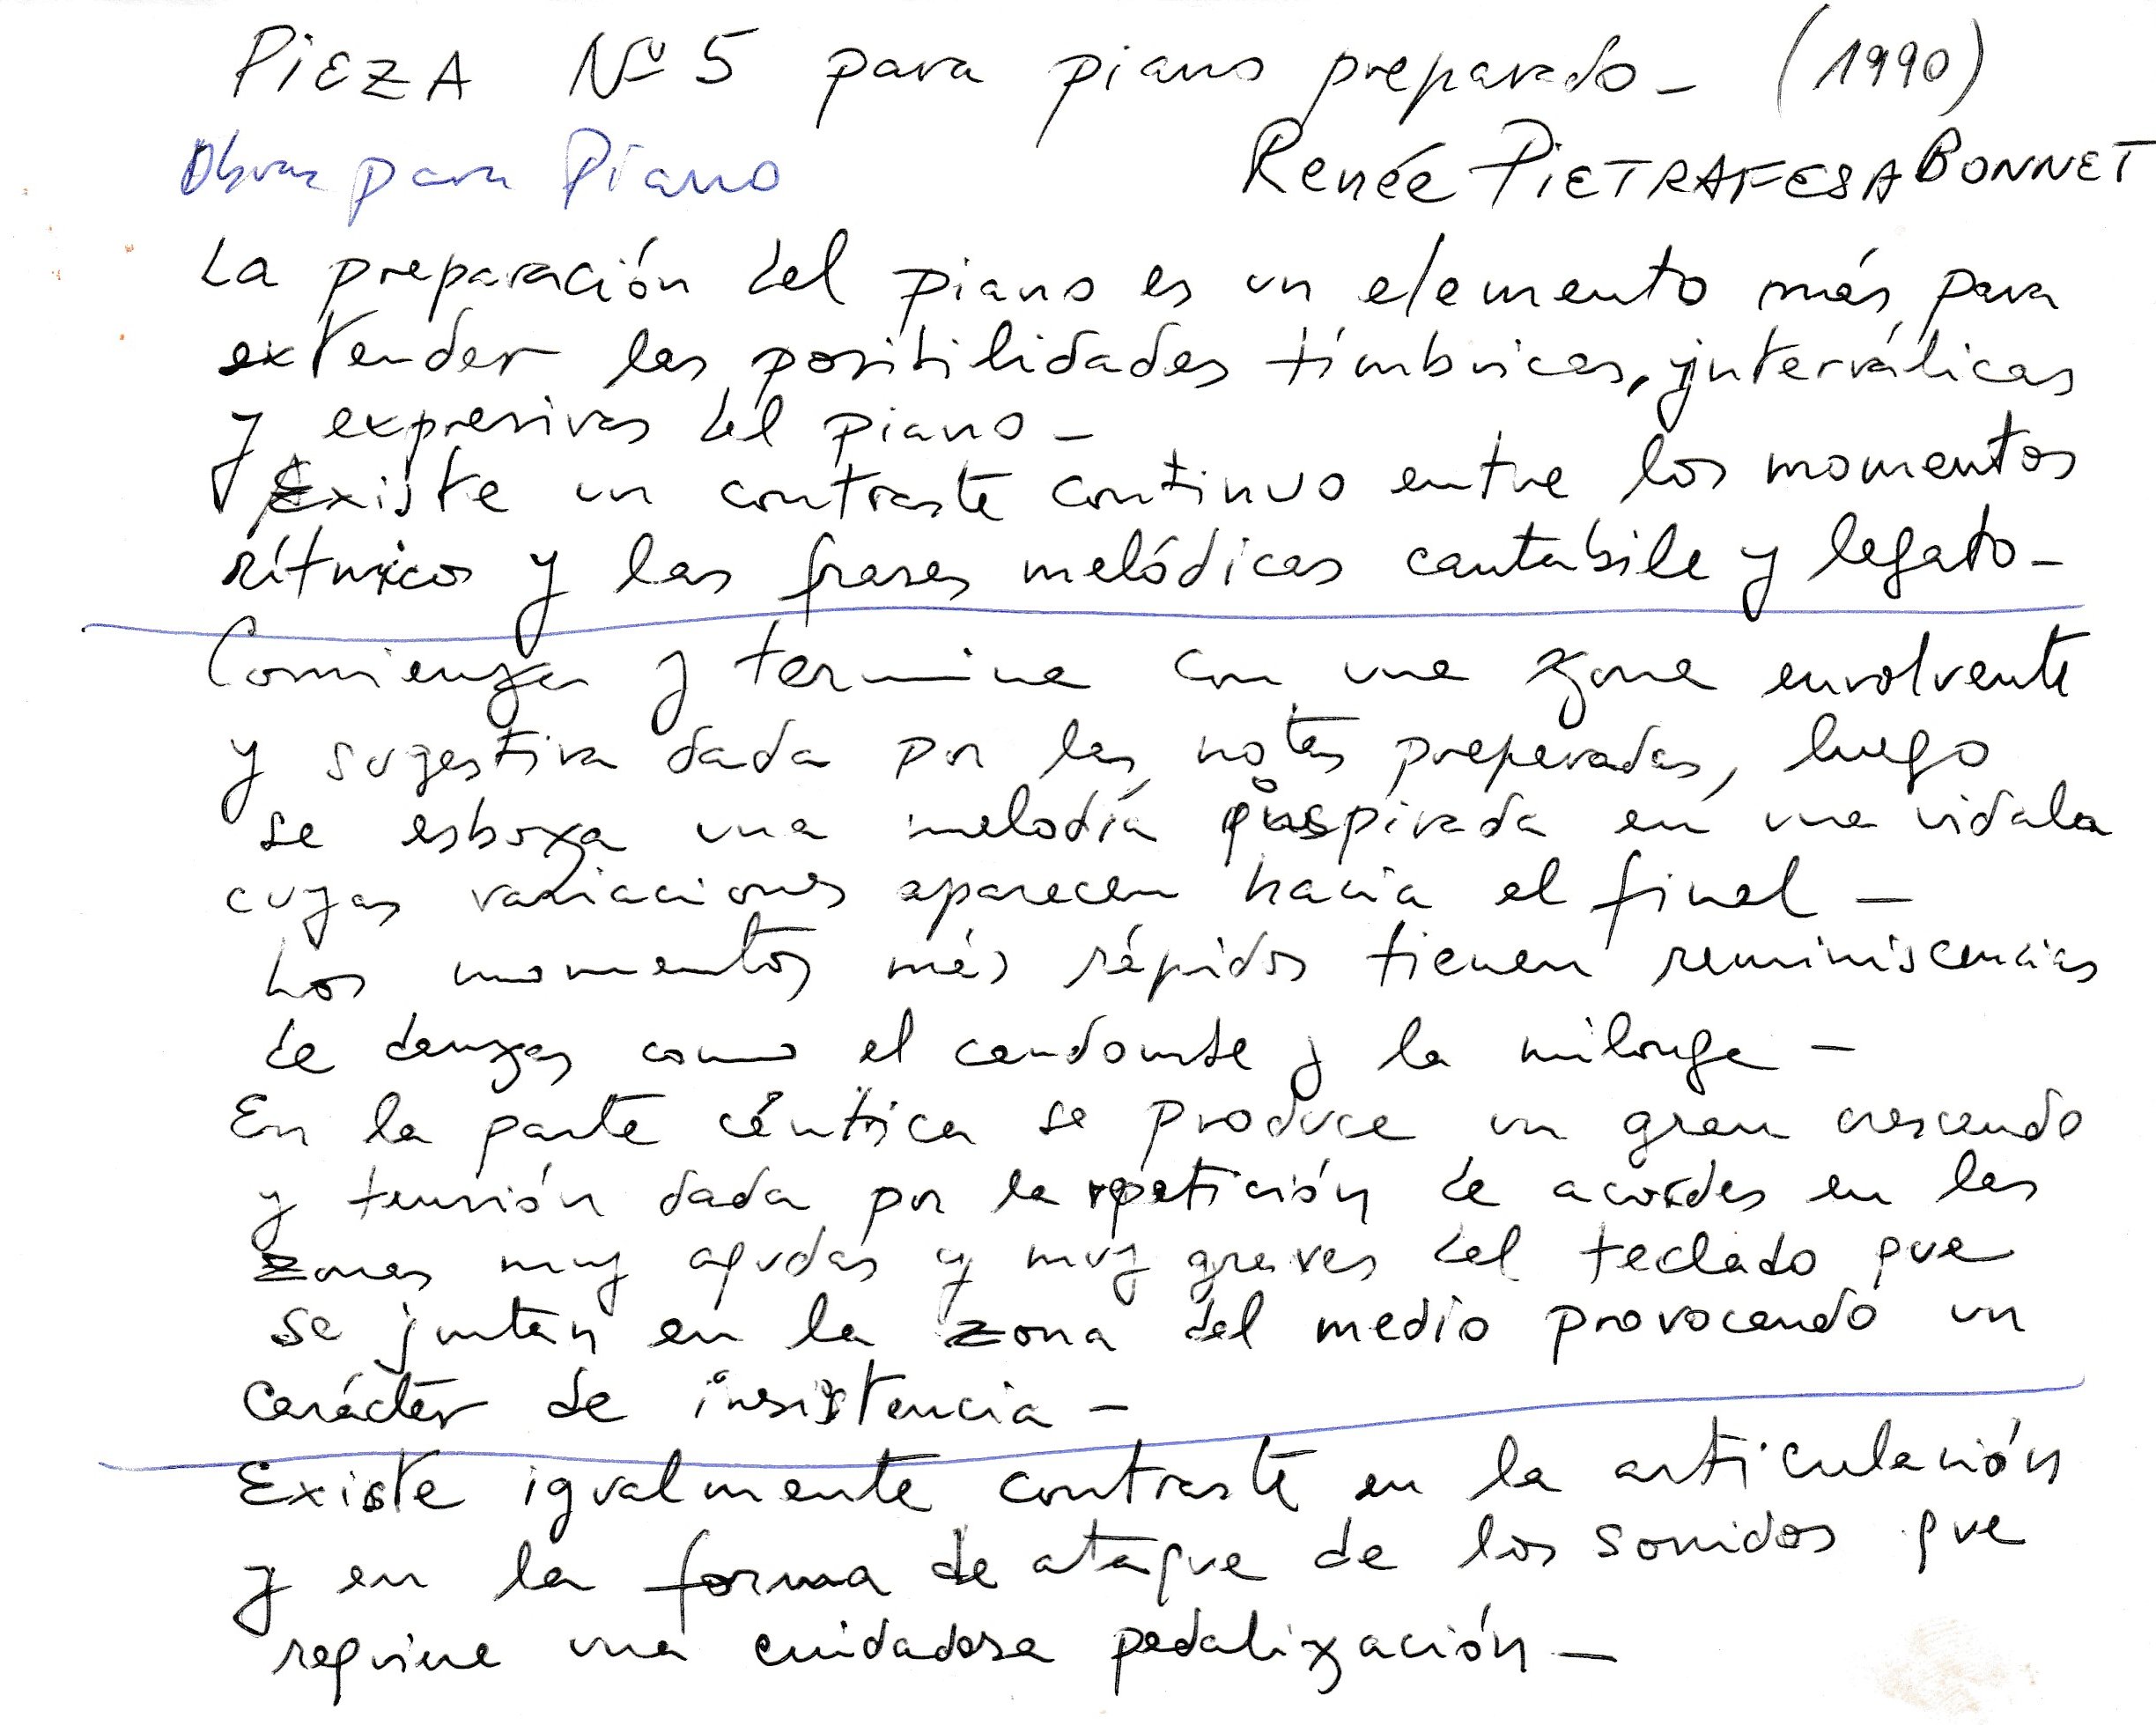 PIEZA Nº 5 para piano preparado - (1990)
Obras para Piano
Renée PIETRAFESA BONNET
La preparación del piano es un elemento más para
extender las posibilidades tímbricas, interválicas
y expresivas del piano -
Existe un contraste continuo entre los momentos
rítmicos y las frases melódicas cantabile y legato -
Comienza y termina con una zona envolvente
y sugestiva dada por las notas preparadas, luego
se esboza una melodía inspirada en una vidala
cuyas variaciones aparecen hacia el final -
Los momentos más rápidos tienen reminiscencias
de danzas como el candombe y la milonga -
En la parte céntrica se produce un gran crescendo
y tensión dada por la repetición de acordes en las
zonas muy agudas y muy graves del teclado que
se juntan en la zona del medio provocando un
carácter de insistencia -
Existe igualmente contraste en la articulación
y en la forma de ataque de los sonidos que
requiere una cuidadosa pedalización -